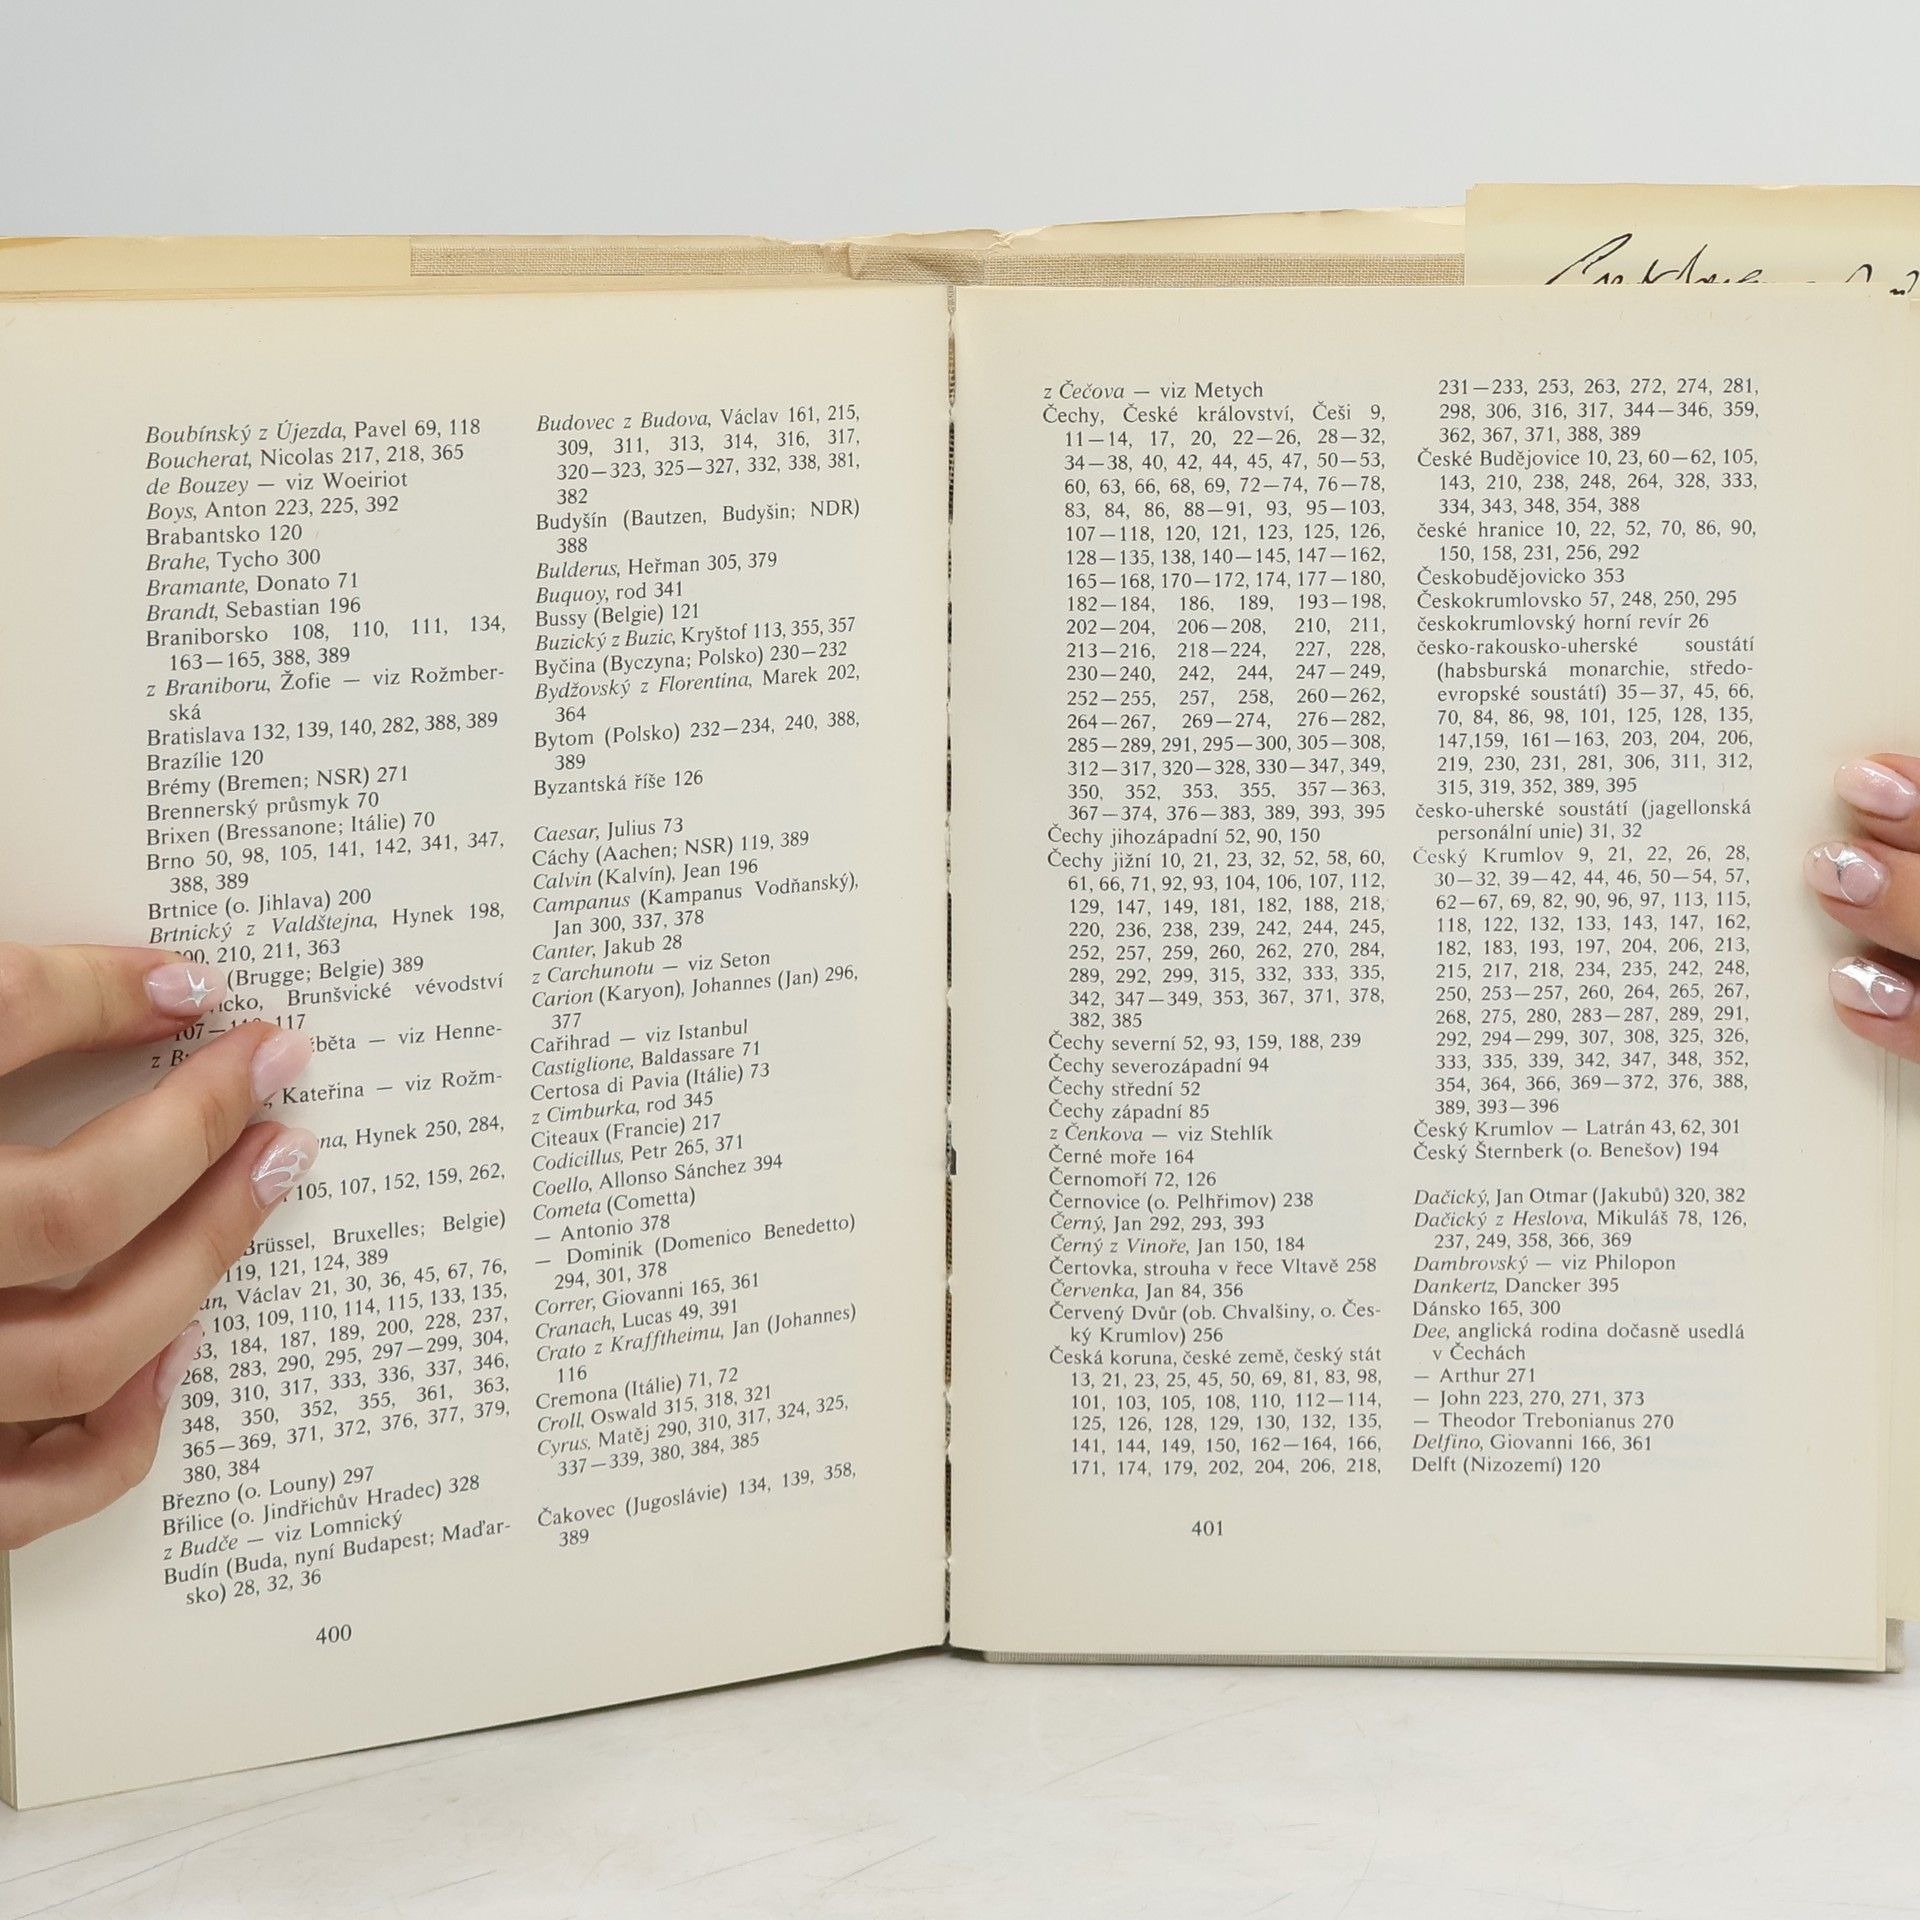 Boubínský z Újezda, Pavel 69, 118
Boucherat, Nicolas 217, 218, 365
de Bouzey — viz Woeiriot
Boys, Anton 223, 225, 392
Brabantsko 120
Brahe, Tycho 300
Bramante, Donato 71
Brandt, Sebastian 196
Braniborsko 108, 110, 111, 134,
163—165, 388, 389
z Braniboru, Žofie — viz Rožmber-
ská
Bratislava 132, 139, 140, 282, 388, 389
Brazílie 120
Brémy (Bremen; NSR) 271
Brennerský průsmyk 70
Brixen (Bressanone; Itálie) 70
Brno 50, 98, 105, 141, 142, 341, 347,
388, 389
Brtnice (o. Jihlava) 200
Brtnický z Valdštejna, Hynek 198,
210, 211, 363
(Brugge; Belgie) 389
Brunšvické vévodství
117
viz Henne-
Kateřina — viz Rožm-
Hynek 250, 284,
105, 107, 152, 159, 262,
Brüssel, Bruxelles; Belgie)
119, 121, 124, 389
Václav 21, 30, 36, 45, 67, 76,
103, 109, 110, 114, 115, 133, 135,
184, 187, 189, 200, 228, 237,
268, 283, 290, 295, 297—299, 304,
309, 310, 317, 333, 336, 337, 346,
348, 350, 352, 355, 361, 363,
365—369, 371, 372, 376, 377, 379,
380, 384
Březno (o. Louny) 297
Břilice (o. Jindřichův Hradec) 328
z Budče — viz Lomnický
Budín (Buda, nyní Budapest; Maďar-
sko) 28, 32, 36
400
Budovec z Budova, Václav 161, 215,
309, 311, 313, 314, 316, 317,
320—323, 325—327, 332, 338, 381,
382
Budyšín (Bautzen, Budyšin; NDR)
388
Bulderus, Heřman 305, 379
Buquoy, rod 341
Bussy (Belgie) 121
Buzický z Buzic, Kryštof 113, 355, 357
Byčina (Byczyna; Polsko) 230—232
Bydžovský z Florentina, Marek 202,
364
Bytom (Polsko) 232—234, 240, 388,
389
Byzantská říše 126
Caesar, Julius 73
Cáchy (Aachen; NSR) 119, 389
Calvin (Kalvín), Jean 196
Campanus (Kampanus Vodňanský),
Jan 300, 337, 378
Canter, Jakub 28
z Carchunotu — viz Seton
Carion (Karyon), Johannes (Jan) 296,
377
Cařihrad — viz Istanbul
Castiglione, Baldassare 71
Certosa di Pavia (Itálie) 73
z Cimburka, rod 345
Citeaux (Francie) 217
Codicillus, Petr 265, 371
Coello, Allonso Sánchez 394
Cometa (Cometta)
— Antonio 378
— Dominik (Domenico Benedetto)
294, 301, 378
Correr, Giovanni 165, 361
Cranach, Lucas 49, 391
Crato z Krafftheimu, Jan (Johannes)
116
Cremona (Itálie) 71, 72
Croll, Oswald 315, 318, 321
Cyrus, Matěj 290, 310, 317, 324, 325,
337—339, 380, 384, 385
Čakovec (Jugoslávie) 134, 139, 358,
389
z Čečova — viz Metych
Čechy, České království, Češi 9,
11—14, 17, 20, 22—26, 28—32,
34—38, 40, 42, 44, 45, 47, 50—53,
60, 63, 66, 68, 69, 72—74, 76—78,
83, 84, 86, 88—91, 93, 95—103,
107—118, 120, 121, 123, 125, 126,
128—135, 138, 140—145, 147—162,
165—168, 170—172, 174, 177—180,
182—184, 186, 189, 193—198,
202—204, 206—208, 210, 211,
213—216, 218—224, 227, 228,
230—240, 242, 244, 247—249,
252—255, 257, 258, 260—262,
264—267, 269—274, 276—282,
285—289, 291, 295—300, 305—308,
312—317, 320—328, 330—347, 349,
350, 352, 353, 355, 357—363,
367—374, 376—383, 389, 393, 395
Čechy jihozápadní 52, 90, 150
Čechy jižní 10, 21, 23, 32, 52, 58, 60,
61, 66, 71, 92, 93, 104, 106, 107, 112,
129, 147, 149, 181, 182, 188, 218,
220, 236, 238, 239, 242, 244, 245,
252, 257, 259, 260, 262, 270, 284,
289, 292, 299, 315, 332, 333, 335,
342, 347—349, 353, 367, 371, 378,
382, 385
Čechy severní 52, 93, 159, 188, 239
Čechy severozápadní 94
Čechy střední 52
Čechy západní 85
z Čenkova — viz Stehlík
Černé moře 164
Černomoří 72, 126
Černovice (o. Pelhřimov) 238
Černý, Jan 292, 293, 393
Černý z Vinoře, Jan 150, 184
Čertovka, strouha v řece Vltavě 258
Červenka, Jan 84, 356
Červený Dvůr (ob. Chvalšiny, o. Čes-
ký Krumlov) 256
Česká koruna, české země, český stát
13, 21, 23, 25, 45, 50, 69, 81, 83, 98,
101, 103, 105, 108, 110, 112—114,
125, 126, 128, 129, 130, 132, 135,
141, 144, 149, 150, 162—164, 166,
171, 174, 179, 202, 204, 206, 218,
401
231—233, 253, 263, 272, 274, 281,
298, 306, 316, 317, 344—346, 359,
362, 367, 371, 388, 389
České Budějovice 10, 23, 60—62, 105,
143, 210, 238, 248, 264, 328, 333,
334, 343, 348, 354, 388
české hranice 10, 22, 52, 70, 86, 90,
150, 158, 231, 256, 292
Českobudějovicko 353
Českokrumlovsko 57, 248, 250, 295
českokrumlovský horní revír 26
česko-rakousko-uherské soustátí
(habsburská monarchie, středo-
evropské soustátí) 35—37, 45, 66,
70, 84, 86, 98, 101, 125, 128, 135,
147,159, 161—163, 203, 204, 206,
219, 230, 231, 281, 306, 311, 312,
315, 319, 352, 389, 395
česko-uherské soustátí (jagellonská
personální unie) 31, 32
Český Krumlov 9, 21, 22, 26, 28,
30—32, 39—42, 44, 46, 50—54, 57,
62—67, 69, 82, 90, 96, 97, 113, 115,
118, 122, 132, 133, 143, 147, 162,
182, 183, 193, 197, 204, 206, 213,
215, 217, 218, 234, 235, 242, 248,
250, 253—257, 260, 264, 265, 267,
268, 275, 280, 283—287, 289, 291,
292, 294—299, 307, 308, 325, 326,
333, 335, 339, 342, 347, 348, 352,
354, 364, 366, 369—372, 376, 388,
389, 393—396
Český Krumlov — Latrán 43, 62, 301
Český Šternberk (o. Benešov) 194
Dačický, Jan Otmar (Jakubů) 320, 382
Dačický z Heslova, Mikuláš 78, 126,
237, 249, 358, 366, 369
Dambrovský — viz Philopon
Dankertz, Dancker 395
Dánsko 165, 300
Dee, anglická rodina dočasně usedlá
v Čechách
— Arthur 271
— John 223, 270, 271, 373
— Theodor Trebonianus 270
Delfino, Giovanni 166, 361
Delft (Nizozemí) 120